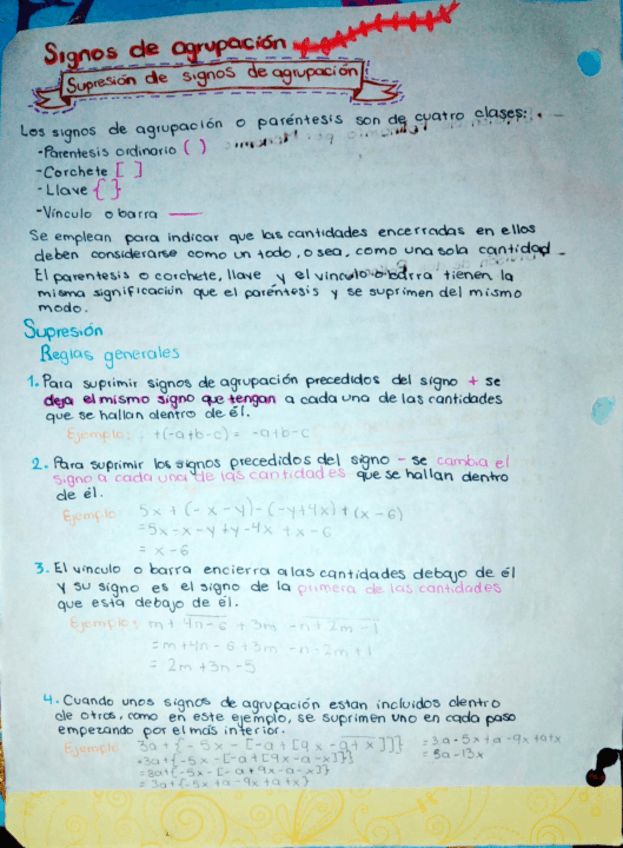 Signos de agrupación
Supresión de signos de agrupación
Los signos de agrupación o paréntesis son de cuatro clases:
-Parentesis ordinario ( )
-Corchete [ ]
-Llave { }
-Vínculo o barra —
Se emplean para indicar que las cantidades encerradas en ellos
deben considerarse como un todo, o sea, como una sola cantidad.
El parentesis o corchete, llave y el vinculo o barra tienen la
misma significación que el paréntesis y se suprimen del mismo
modo.
Supresión
Reglas generales
1. Para suprimir signos de agrupación precedidos del signo + se
deja el mismo signo que tengan a cada una de las cantidades
que se hallan dentro de él.
Ejemplo: +(-a+b-c) = -a+b-c
2. Para suprimir los signos precedidos del signo - se cambia el
signo a cada una de las cantidades que se hallan dentro
de él.
Ejemplo 5x + (-x-y)-(-y+4x)+(x-6)
=5x-x-y+y-4x+x-6
= x-6
3. El vinculo o barra encierra a las cantidades debajo de él
y su signo es el signo de la primera de las cantidades
que esta debajo de él.
Ejemplo: m + 4n-6 + 3m -n+2m-1
=m+4n-6+3m-n-2m+1
= 2m+3n-5
4. Cuando unos signos de agrupación estan incluidos dentro
de otros, como en este ejemplo, se suprimen uno en cada paso
empezando por el más interior.
Ejemplo 3a+{-5x-[-a+[9x-a+x]]} =3a-5x+a-9x+a+x
=3a+{-5x-[-a+[9x-a-x]]} =5a-13x
=3a+{-5x-[-a+9x-a-x]}
=3a+{-5x+a-9x+a+x}